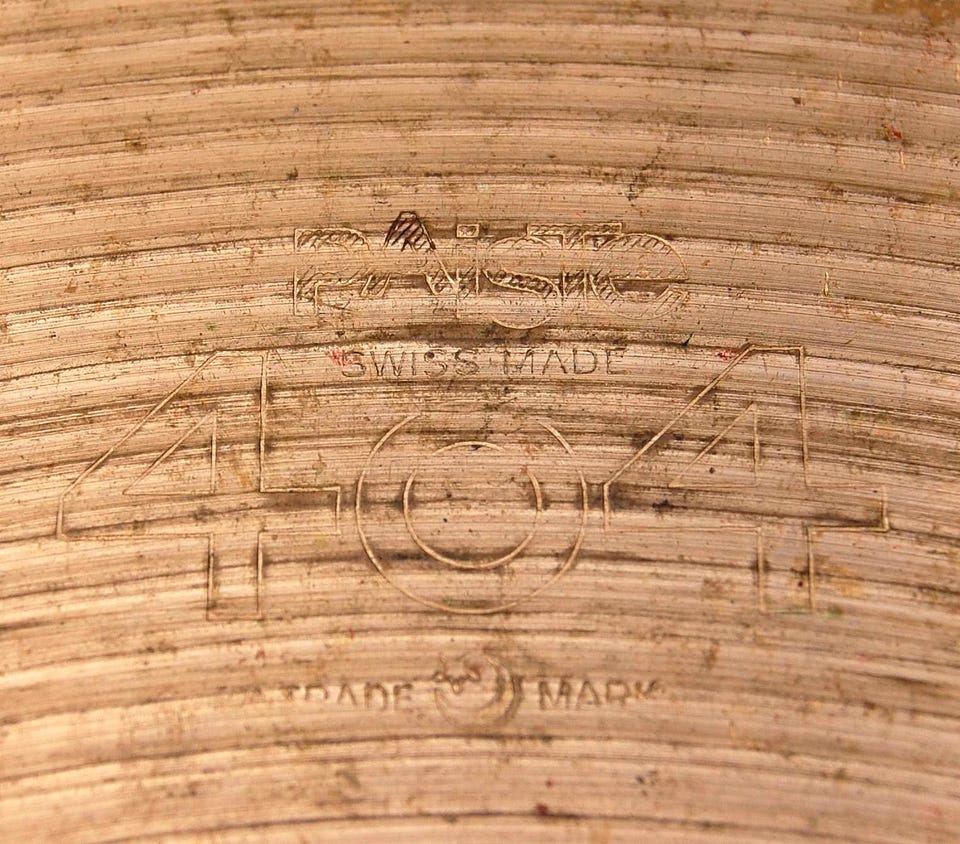 PAiSTe
SWISS MADE
404
TRADE MARK